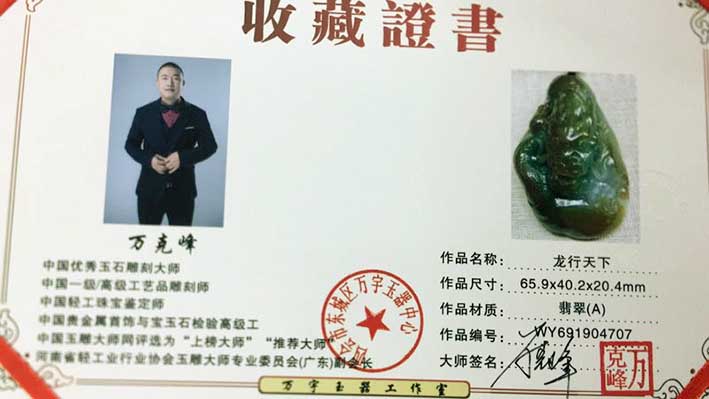 收藏證書
万克峰
中国优秀玉石雕刻大师
中国一级/高级工艺品雕刻师
中国轻工珠宝鉴定师
中国贵金属首饰与宝玉石检验高级工
中国玉雕大师网评选为“上榜大师”“推荐大师”
河南省轻工业行业协会玉雕大师专业委员会(广东)副会长
会市东城区万字玉器中心
作品名称: 龙行天下
作品尺寸: 65.9x40.2x20.4mm
作品材质: 翡翠(A)
作品编号: WY691904707
大师签名:
万克峰
万字玉器工作室